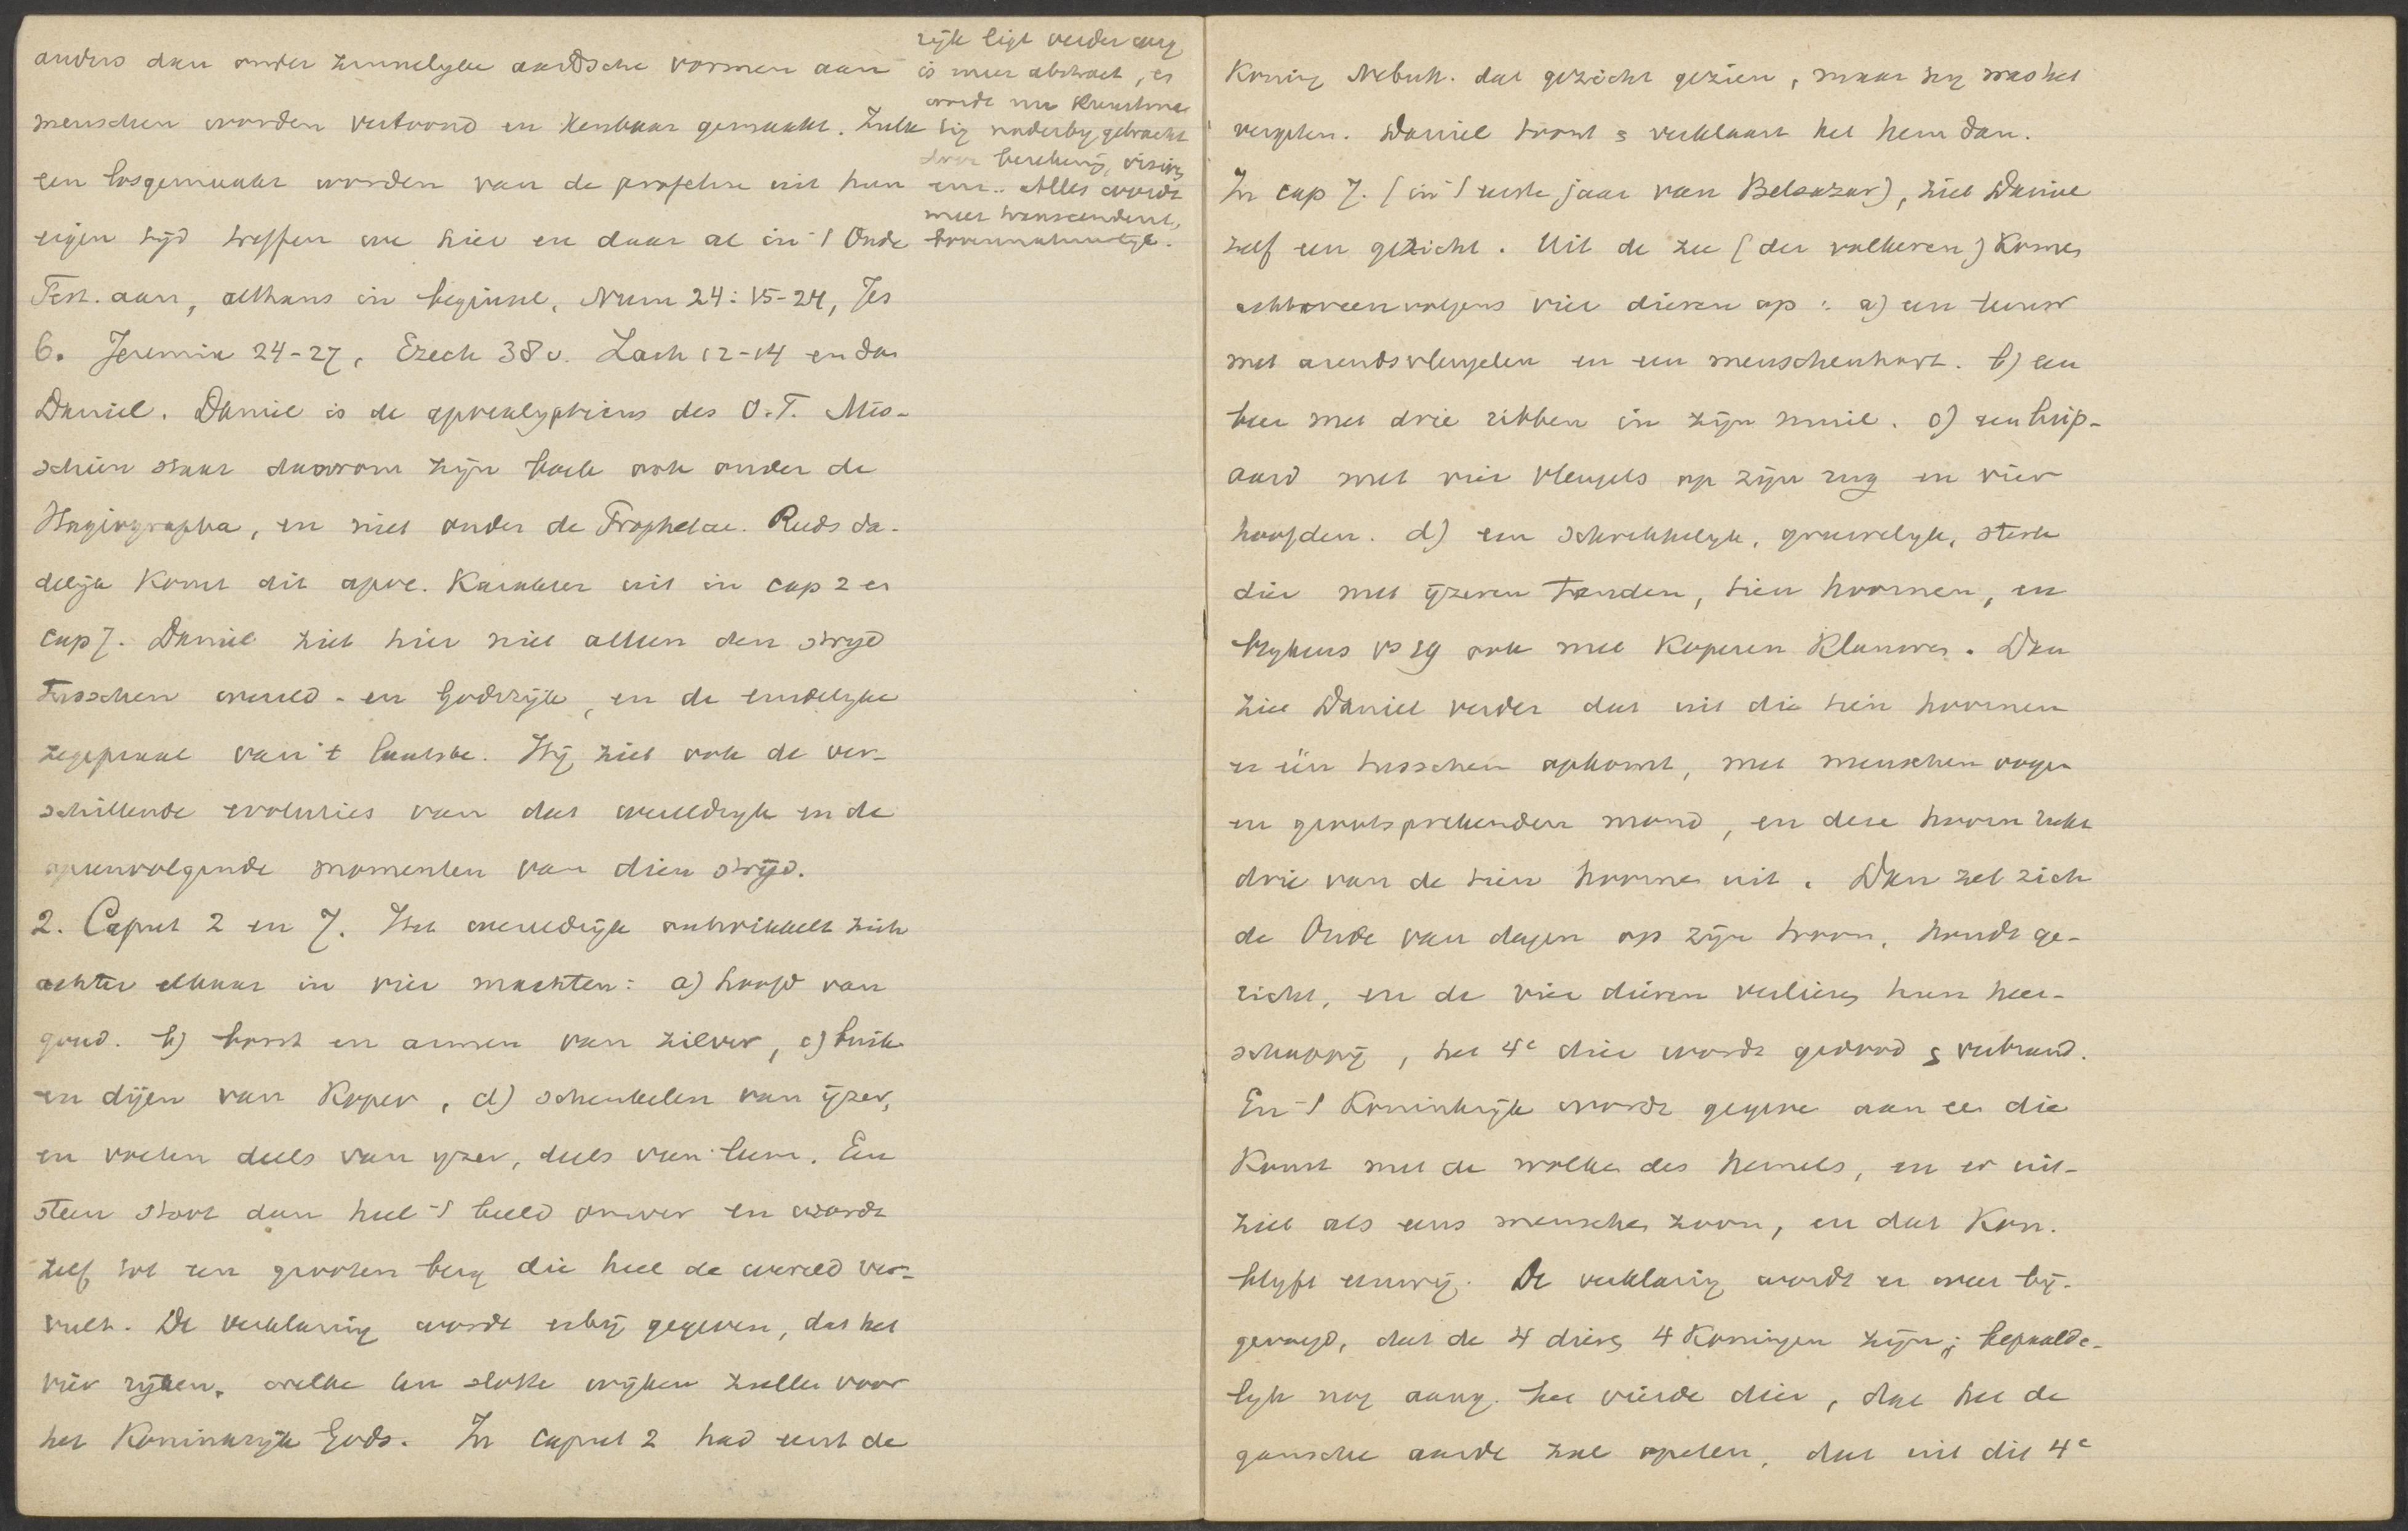 anders dan onder zinnelyke aardsche vormen aan
menschen worden vertoond en kenbaar gemaakt. Zulk
een losgemaakt worden van de profetie uit hun
eigen tijd treffen we hier en daar al in 't Oude
Test. aan, althans in beginsel, Num 24:15-24, Jes
6. Jeremia 24-27, Ezech 38 v. Zach 12-14 en dan
Daniel. Daniel is de apocalypticus des O.T. Mis-
schien staat daarom zijn boek ook onder de
Hagiographa, en niet onder de Prophetae. Reeds da-
delijk komt dit apoc. karakter uit in cap 2 en
cap 7. Daniel ziet hier niet alleen den stryd
tusschen wereld- en Godsrijk, en de eindelyke
zegepraal van 't laatste. Hij ziet ook de ver-
schillende evoluties van dat wereldryk en de
opeenvolgende momenten van dien strijd.
2. Caput 2 en 7. Het wereldrijk ontwikkelt zich
achter elkaar in vier machten: a) hoofd van
goud. b) borst en armen van zilver, c) buik
en dijen van koper, d) schenkelen van ijzer,
en voeten deels van yzer, deels van leem. Een
steen stoot dan heel 't beeld omver en wordt
zelf tot een grooten berg die heel de wereld ver-
vult. De verklaring wordt erbij gegeven, dat het
vier ryken, welke ten slotte wijken zullen voor
het Koninkryk Gods. In caput 2 had eerst de
rijk ligt verder weg
is meer abstract, er
wordt nu kunstma
tig naderby gebracht
door berekening, visioen
enz.. Alles wordt
meer transcendent,
bovennatuurlijk.
Koning Nebuk. dat gezicht gezien, maar hy was het
vergeten. Daniel toont & verklaart het hem dan.
In cap 7. (in 't eerste jaar van Belsazar), ziet Daniel
zelf een gezicht. Uit de zee (der volkeren) komen
achtereenvolgens vier dieren op: a) een leeuw
met arendsvleugelen en een menschenhart. b) een
beer met drie ribben in zijn muil. c) een luip-
aard met vier vleugels op zijn rug en vier
hoofden. d) een schrikkelyk, gruwelyk, sterk
dier met ijzeren tanden, tien hoornen, en
blykens vs 19 ook met koperen klauwen. Dan
ziet Daniel verder dat uit die tien hoornen
er één tusschen opkomt, met menschen oogen
en grootsprekenden mond, en deze hoorn rukt
drie van de tien hoornen uit. Dan zet zich
de Oude van dagen op zijn troon, houdt ge-
richt, en de vier dieren verliezen hun heer-
schappij, het 4e dier wordt gedood & verbrand.
En 't Koninkrijk wordt gegeven aan een die
komt met de wolken des hemels, en er uit-
ziet als eens menschen zoon, en dat Kon.
blyft eeuwig. De verklaring wordt er weer bij-
gevoegd, dat de 4 dieren 4 Koningen zijn; bepaalde-
lyk nog aang. het vierde dier, dat het de
gansche aarde zal opeten, dat uit dit 4e